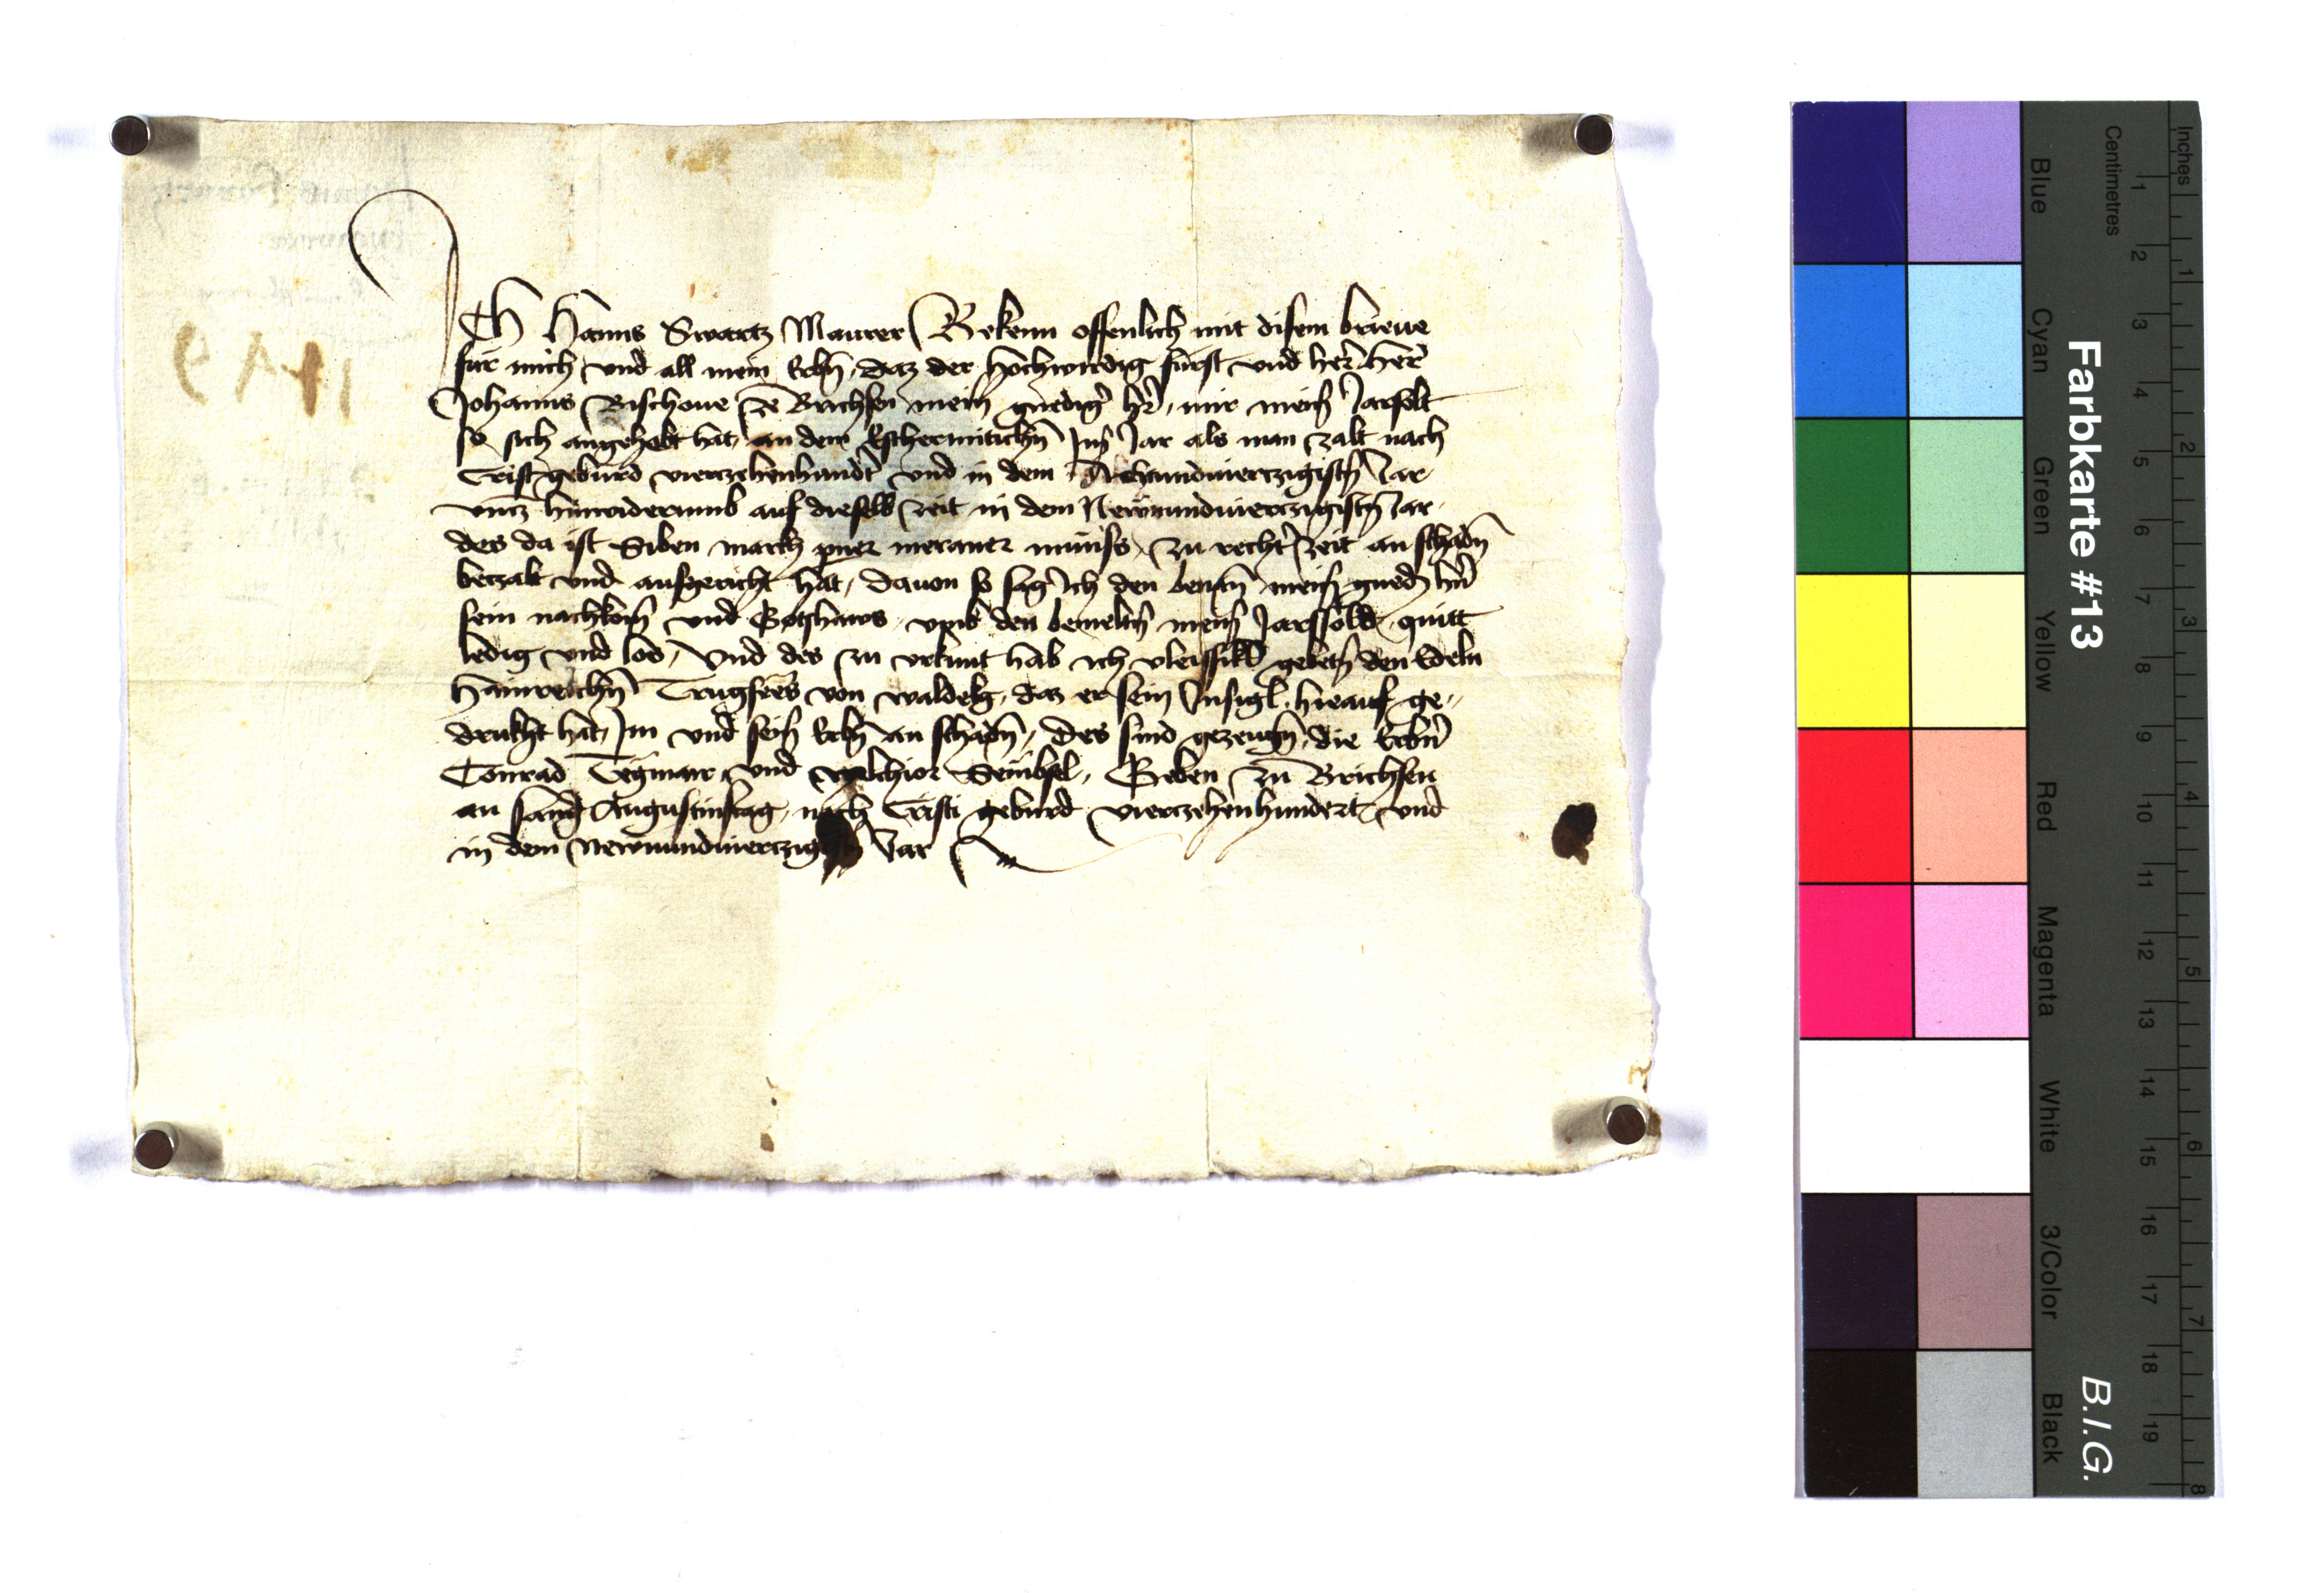 Ich Hanns Swartz Maurer Bekenn offenlich mit disem brieue
fur mich vnd all mein Erbn̄, daz der hochwirdig furst vnd her̄ her̄
Johanns Bischoue ze Brichsen mein gnedigr̄ hr̄, mir meinn̄ Jarsolt
so sich angehebt hat, an dem Eschermitichn̄ Jn̄s Jar als man zalt nach
Crist geburd vierczehenhundr̄t vnd in dem Achtundvierczigistn̄ Jar
vncz hinwiderumb auf dieselb zeit in dem Newnundvierczigistn̄ Jar
des da ist Siben markh pner meraner müniss, zu rechtr̄ zeit an schadn̄
beczalt vnd ausgericht hat, dauon so sag ich den benn̄tn̄ meinn̄ gnedn̄ hrn̄
sein nachkomn̄ vnd Gotzhaws, vmb den bemeltn̄ meinn̄ Jarssold, quitt
ledig vnd los, Vnd des zu vrkunt hab ich vleissikl̄ gebetn̄ den Edeln
Hainreichn̄ Trugsecz von waldekg, daz er sein Insigl hierauf ge„
drukht hat, Im vnd seinn̄ Erbn̄ an schadn̄, des sind gezeugn̄, die Erbrn̄
Conrad Tegmair vnd Melchior Seubsel, Geben zu Brichsen
an sand Augustinstag, nach Cristi geburd vierczehenhundert vnd
in dem Newnundvierczig Jar
Farbkarte #13
B.I.G.
Inches
Centimetres
Blue
Cyan
Green
Yellow
Red
Magenta
White
3/Color
Black
1 2 3 4 5 6 7 8 9 10 11 12 13 14 15 16 17 18 19
1 2 3 4 5 6 7 8